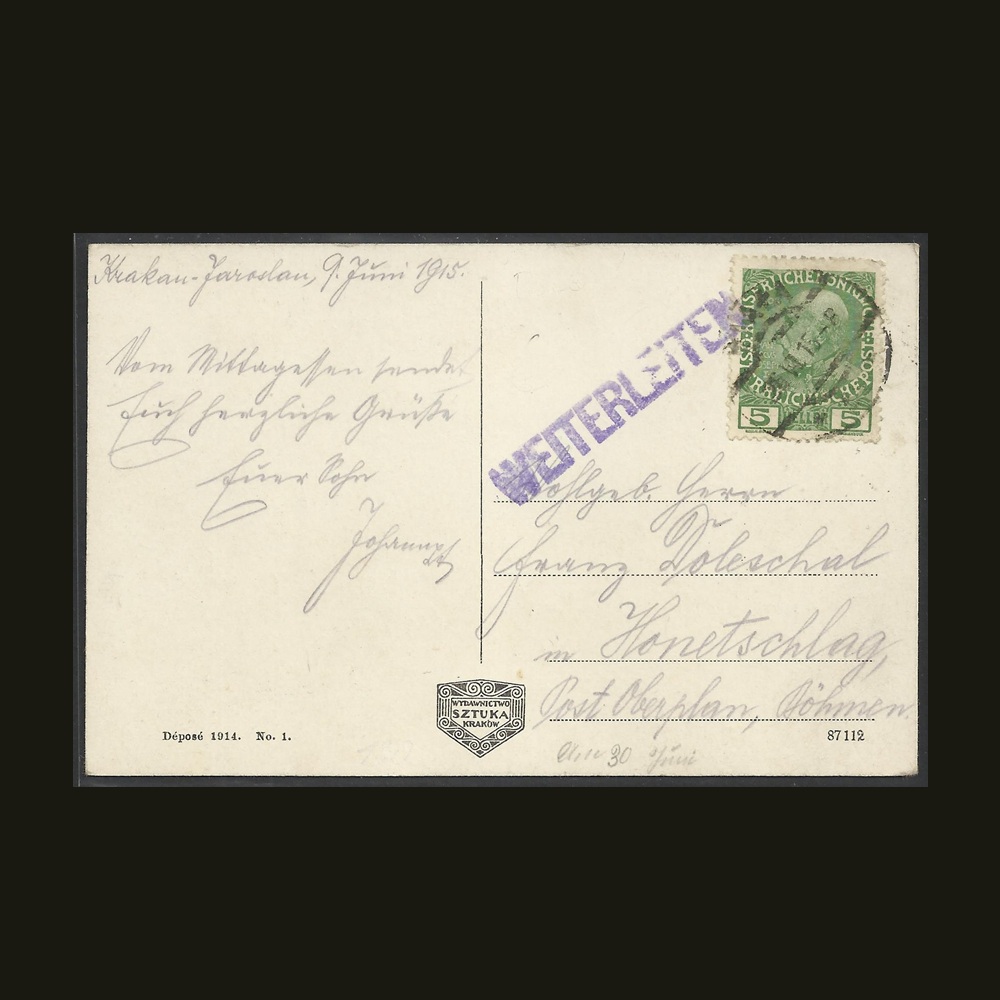 Krakau-Jaroslau, 9. Juni 1915.
Vom Mittagessen sendet
Euch herzliche Grüße
Euer Sohn
Johann
WEITERLEITEN
5 5
Wohlgeb. Herrn
Franz Doleschal
in Honetschlag,
Post Oberplan, Böhmen.
30 Juni
WYDAWNICTWO
SZTUKA
KRAKÓW
Déposé 1914. No. 1.
87112